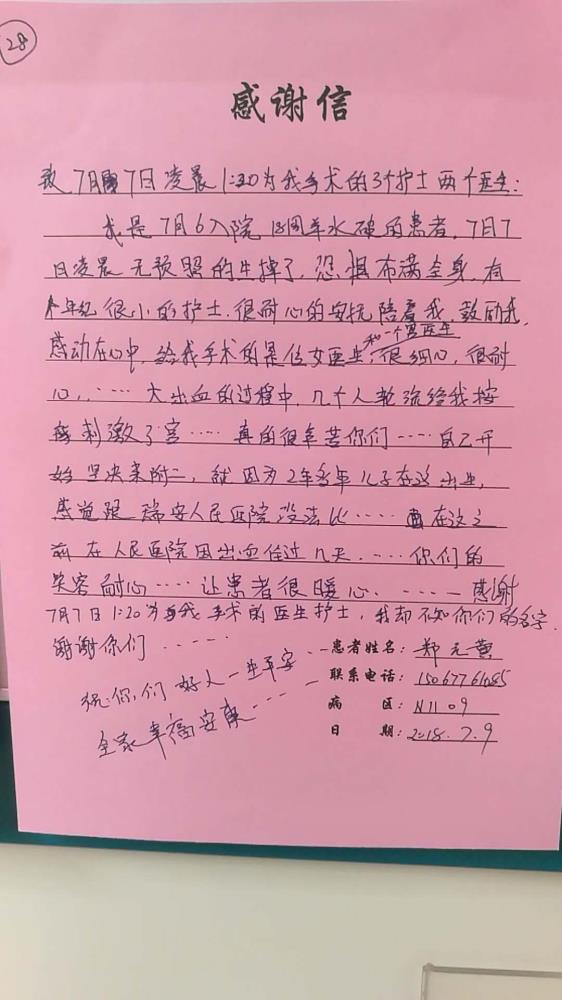 28
感谢信
致7月7日凌晨1:20为我手术的3个护士两个医生:
我是7月6入院 18周羊水破的患者,7月7
日凌晨无预照的生掉了,恐惧布满全身,有
个年纪很小的护士,很耐心的安抚陪着我,鼓励我,
感动在心中,给我手术的是位女医生和一个男医生,很细心,很耐
心,……大出血的过程中,几个人轮流给我按
刺激子宫……真的很辛苦你们……自己开
始坚决来附二,就因为2年多年儿子在这出生,
感觉跟瑞安人民医院没法比……在这之
前在人民医院因出血住过几天……你们的
笑容耐心……让患者很暖心……感谢
7月7日1:20为我手术的医生护士,我却不知你们的名字
谢谢你们……
祝你们好人一生平安……
全家幸福安康……
患者姓名:郑元黄
联系电话:
病 区:N1109
日 期:2018.7.9